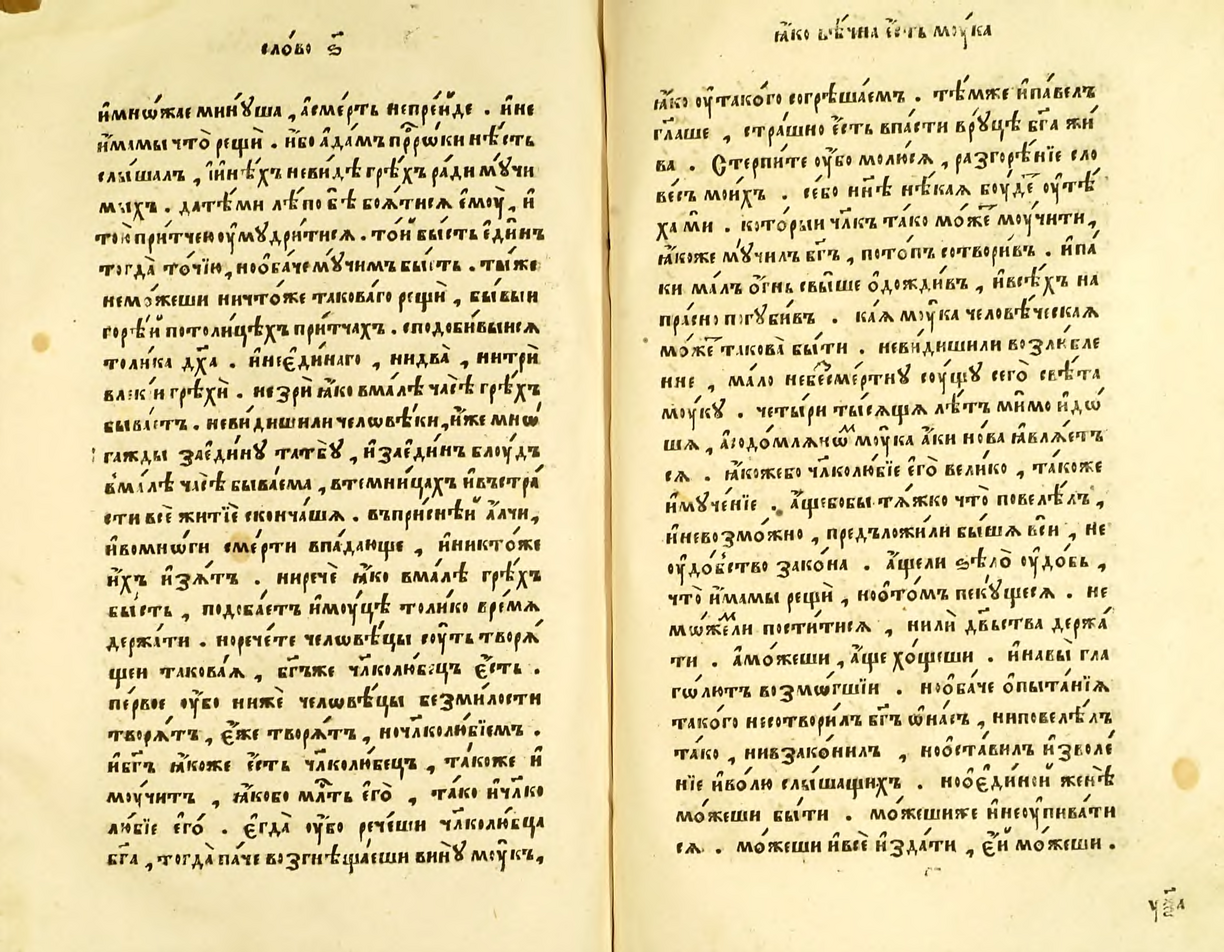 сло́во ѕ҃
и҆мнѡ́жае мину́ша , а҆сме́рть непрей́де . и҆не
и҆́мамы что̀ рещѝ . и҆бо а҆да́мъ прⷪ҇рѡки нѣ́сть
слы́шалъ , и҆и҆нѣ́хъ неви́дѣ грѣ́хъ ра́ди мꙋ́чи
мыхъ . да тѣ́ми лѣ́по бѣ̀ боѧ́тисѧ є҆моу̀ , и҆
то́ю при́тчею оу҆мꙋдри́тисѧ . то́и бы́сть є҆ди́нъ
тогда̀ то́чїю , ноо҆ба́че мꙋ́чимъ бы́сть . ты́же
немо́жеши ничто́же такова́го рещѝ , бы́выи
горѣ́ и҆ потоли́цѣхъ при́тчах . сподо́бивыисѧ
толи́ка дх҃а . и҆нее҆ди́наго , нидва̀ , нитрѝ
ва́жки грѣхѝ . незрѝ ꙗ҆́ко вма́лѣ ча́сѣ грѣ́хъ
быва́етъ . неви́дишили человѣ́ки , и҆́же мнѡ́
гажды заеди́нꙋ татбꙋ̀ , и҆заеди́нъ блоу́дъ
вма́лѣ ча́сѣ быва́ема , втемни́цахъ и҆въстра́
сти всѐ житїѐ сконча́шѧ . въприснѣ́и а҆́лчи ,
и҆вомнѡ́ги сме́рти впа́дающе , и҆никто́же
и҆́хъ и҆зѧ́тъ . ниречѐ ꙗ҆́ко вма́лѣ грѣ́хъ
бы́сть , подоба́етъ и҆моу́цѣ толи́ко вре́мѧ
держа́ти . норече́те человѣ́цы соу́ть творѧ́
щеи такова́ѧ , бг҃ъже чл҃колю́бецъ є҆́сть .
пе́рвое оу҆́бо нижѐ человѣ́цы безми́лости
творѧ́тъ , є҆́же творѧ́тъ , ночл҃колю́бїемъ .
и҆бг҃ъ ꙗ҆́коже є҆́сть чл҃колю́бецъ , та́коже и҆
моу́читъ , ꙗ҆́кобо млⷭ҇ть є҆го̀ , та́ко и҆чл҃ко
лю́бїе є҆го́ . є҆гда̀ оу҆́бо рече́ши чл҃колю́бца
бг҃а , тогда̀ па́че возгнѣща́еши винꙋ̀ моу́къ ,
ꙗ҆́ко вѣ́чна є҆́сть моу́ка
ꙗ҆́ко оу҆тако́го согрѣша́емъ . тѣ́мже и҆па́велъ
гл҃аше , стра́шно є҆́сть впа́сти врꙋ́цѣ бг҃а жи́
ва . Стерпи́те оу҆́бо молю́сѧ , разгорѣ́нїе сло
ве́съ мои́хъ . се́бо нн҃ѣ нѣ́каѧ боу́деⷮ оу҆тѣ́
ха ми . кото́рыи чл҃къ та́ко мо́жеⷮ моу́чити ,
ꙗ҆́коже мꙋ́чилъ бг҃ъ , пото́пъ сотвори́въ . и҆па́
ки ма́лъ о҆́гнь свы́ше о҆дожди́въ , и҆всѣ́хъ на
пра́сно погꙋби́въ . ка́ѧ моу́ка человѣ́ческаѧ
мо́жеⷮ такова̀ бы́ти . неви́дишили возлю́бле
нне , ма́ло небесме́ртнꙋ соу́щꙋ сего̀ свѣ́та
моу́кꙋ . четы́ри ты́сѧщѧ лѣ́тъ ми́мо и҆дѡ́
шѧ , а҆содо́млѧнѡⷨ моу́ка а҆́ки но́ва ꙗ҆влѧ́етъ
сѧ . ꙗ҆́кожебо чл҃колю́бїе є҆го̀ вели́ко , та́коже
и҆мꙋче́нїе . а҆́щебобы тѧ́жко что̀ повелѣ́лъ ,
и҆невозмо́жно , предъложи́ли бы́шѧ всѝ , не
оу҆до́бьство зако́на . а҆́щели ѕѣло̀ оу҆до́бь ,
что̀ и҆́мамы рещѝ , ноо҆то́мъ пекꙋ́щесѧ . не
мѡ́жели пости́тисѧ , нили̂ дв҃ьства держа́
ти . а҆мо́жеши , а҆́ще хо́щеши . и҆навы̀ гла
гѡ́лютъ возмѡ́гшїи . нооба́че о҆пыта́нїѧ
тако́го несотвори́лъ бг҃ъ ѡ҆на́съ , ниповелѣ́лъ
та́ко , нивзако́нилъ , нооста́вилъ и҆зволе́
нїе и҆во́лю слы́шащихъ . ноое҆ди́нои женѣ̀
мо́жеши бы́ти . мо́жешиже и҆неоу҆пива́ти
сѧ . мо́жеши и҆всѐ и҆зда́ти , є҆́и мо́жеши .